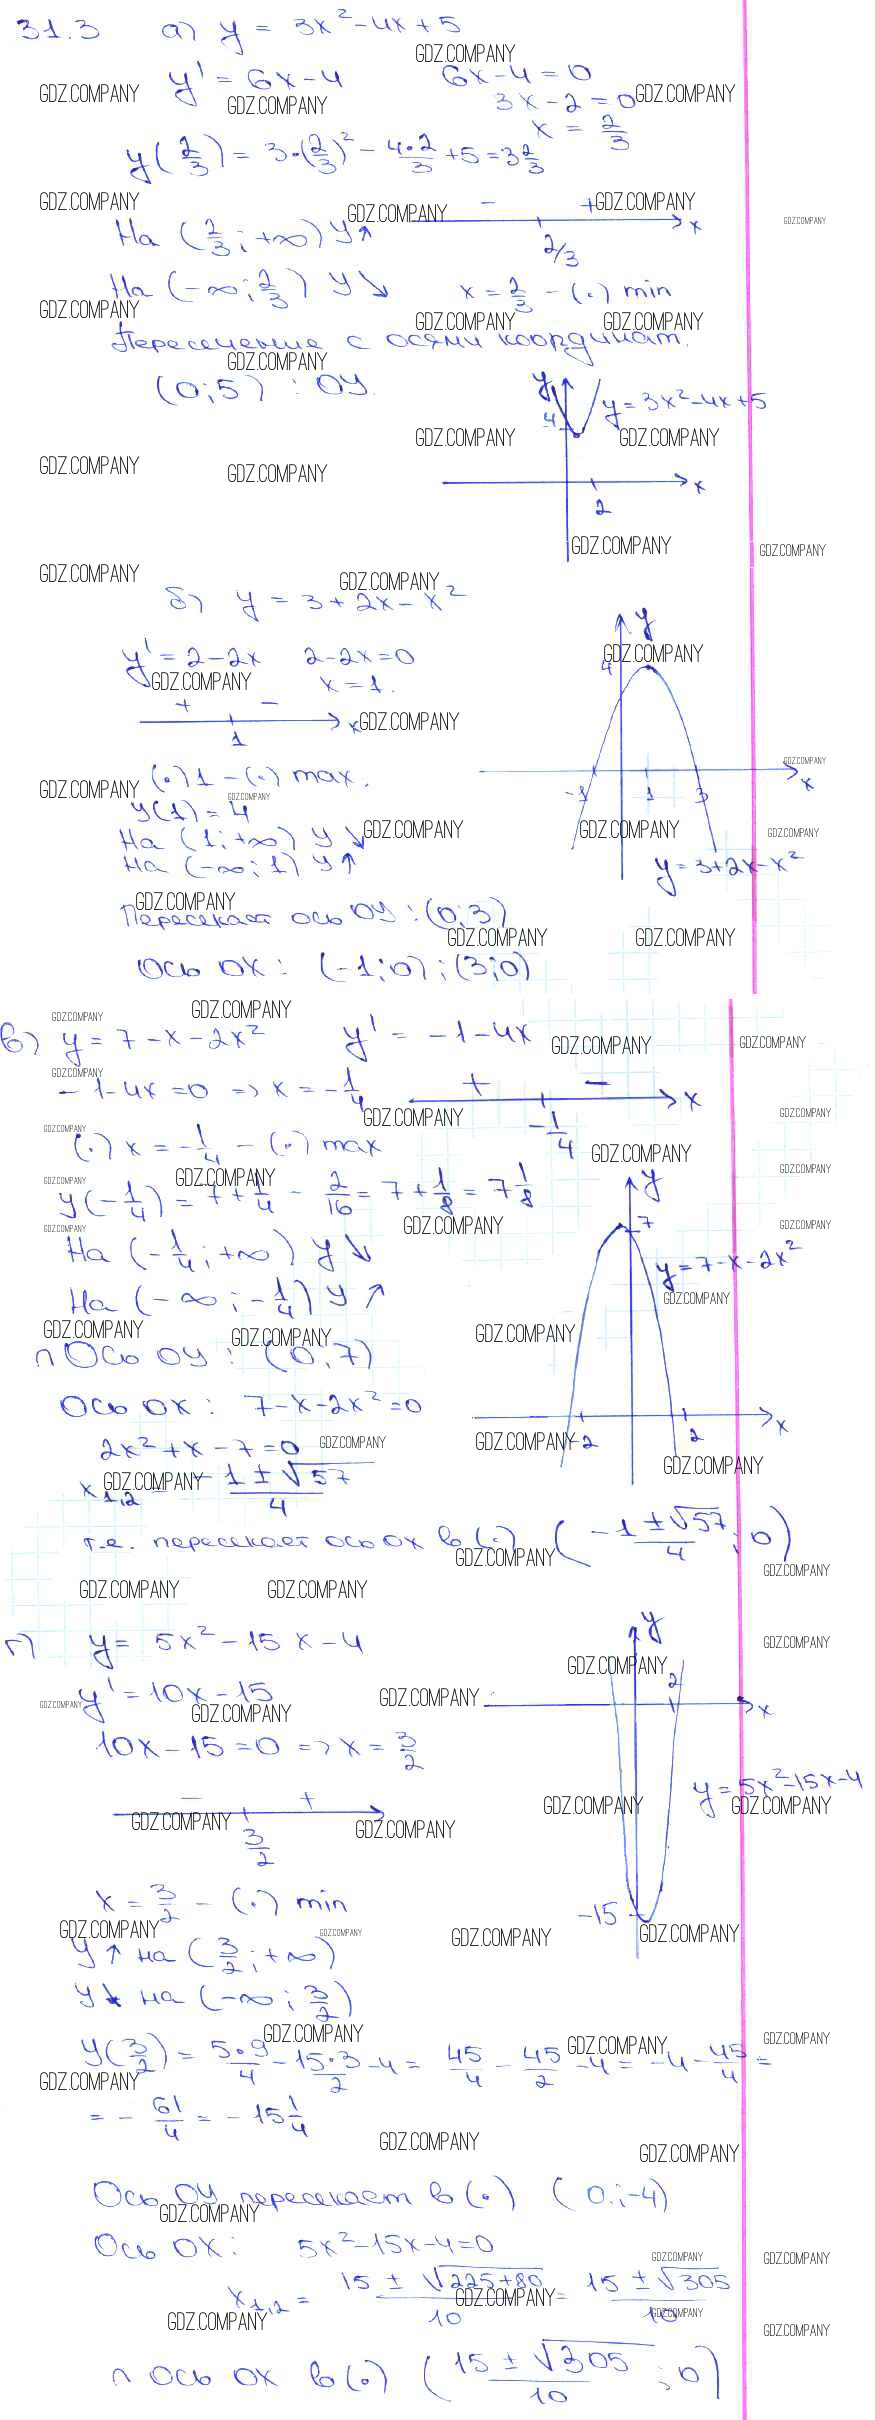 31.3 а) y = 3x² - 4x + 5
y' = 6x - 4 6x - 4 = 0
3x - 2 = 0
x = 2/3
y(2/3) = 3·(2/3)² - 4·2/3 + 5 = 3 2/3
- +
x
2/3
На (2/3; +∞) y↑
На (-∞; 2/3) y↘ x = 2/3 - (·) min
Пересечение с осями координат.
(0; 5) : OY.
y
y = 3x² - 4x + 5
4
x
2
б) y = 3 + 2x - x²
y' = 2 - 2x 2 - 2x = 0
x = 1.
+ -
x
1
(·) 1 - (·) max.
y(1) = 4
На (1; +∞) y↘
На (-∞; 1) y↑
Пересекает ось OY : (0; 3)
Ось OX : (-1; 0) ; (3; 0)
y
4
-1 1 3 x
y = 3 + 2x - x²
в) y = 7 - x - 2x² y' = -1 - 4x
-1 - 4x = 0 => x = -1/4
+ -
x
-1/4
(·) x = -1/4 - (·) max
y(-1/4) = 7 + 1/4 - 2/16 = 7 + 1/8 = 7 1/8
На (-1/4; +∞) y↘
На (-∞; -1/4) y↗
∩ Ось OY : (0; 7)
Ось OX : 7 - x - 2x² = 0
2x² + x - 7 = 0
x1,2 = -1 ± √57 / 4
y
7
y = 7 - x - 2x²
-2 2 x
т.е. пересекает ось OX в (·) (-1 ± √57 / 4; 0)
г) y = 5x² - 15x - 4
y' = 10x - 15
10x - 15 = 0 => x = 3/2
- +
3/2
y
2
x
y = 5x² - 15x - 4
-15
x = 3/2 - (·) min
y↑ на (3/2; +∞)
y↓ на (-∞; 3/2)
y(3/2) = 5·9/4 - 15·3/2 - 4 = 45/4 - 45/2 - 4 = -4 - 45/4 =
= -61/4 = -15 1/4
Ось OY пересекает в (·) (0; -4)
Ось OX : 5x² - 15x - 4 = 0
x1,2 = 15 ± √225+80 / 10 = 15 ± √305 / 10
∩ Ось OX в (·) (15 ± √305 / 10; 0)
GDZ.COMPANY